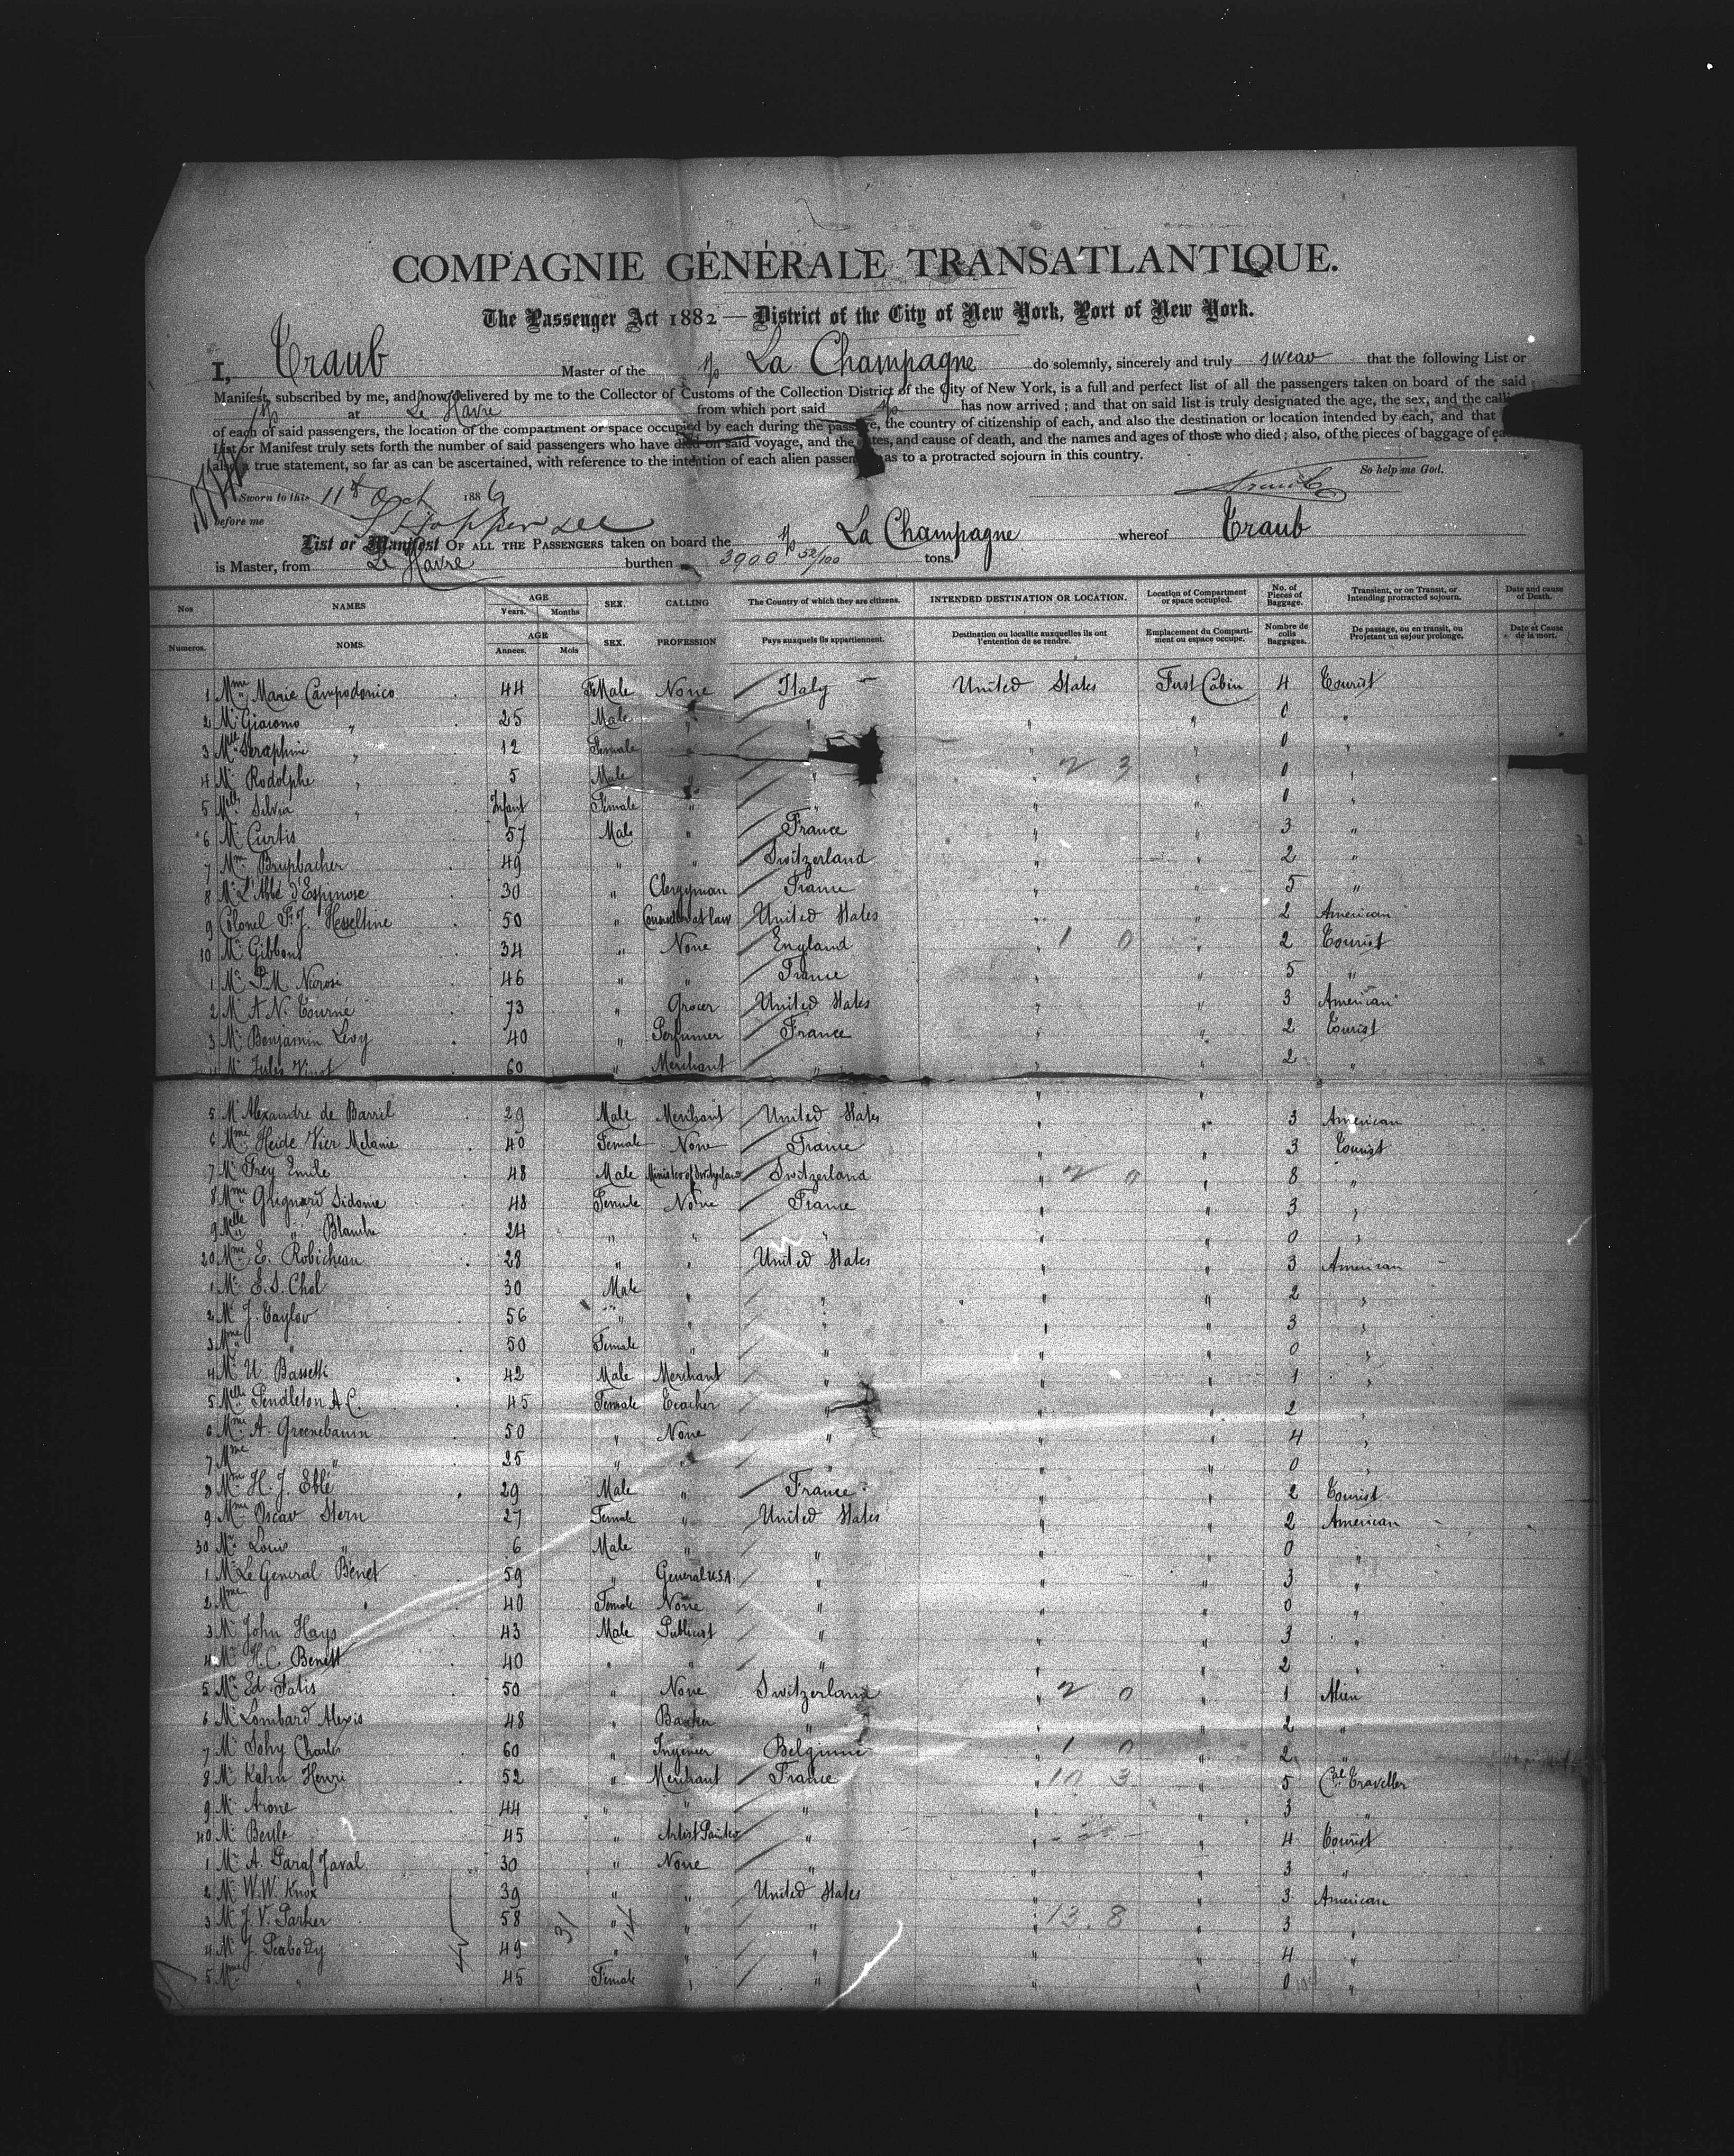 COMPAGNIE GÉNÉRALE TRANSATLANTIQUE.
The Passenger Act 1882 — District of the City of New York, Port of New York.
I, Traub Master of the s/s La Champagne do solemnly, sincerely and truly swear that the following List or
Manifest, subscribed by me, and now delivered by me to the Collector of Customs of the Collection District of the City of New York, is a full and perfect list of all the passengers taken on board of the said
s/s at Le Havre from which port said s/s has now arrived; and that on said list is truly designated the age, the sex, and the
of each of said passengers, the location of the compartment or space occupied by each during the the country of citizenship of each, and also the destination or location intended by each, and that
List or Manifest truly sets forth the number of said passengers who have died on said voyage, and the and cause of death, and the names and ages of those who died; also, of the pieces of baggage of
also a true statement, so far as can be ascertained, with reference to the intention of each alien as to a protracted sojourn in this country.
So help me God.
Sworn to this 11th Oct 1886 Traub
before me
List or Manifest OF ALL THE PASSENGERS taken on board the s/s La Champagne whereof Traub
is Master, from Le Havre burthen 3906 52/100 tons.
Nos NAMES AGE Years. Months SEX. CALLING The Country of which they are citizens. INTENDED DESTINATION OR LOCATION. Location of Compartment or space occupied. No. of Pieces of Baggage. Transient, or on Transit, or Intending protracted sojourn. Date and cause of Death.
Numeros. NOMS. AGE Annees. Mois SEX. PROFESSION Pays auxquels ils appartiennent. Destination ou localite auxquelles ils ont l'entention de se rendre. Emplacement du Comparti-ment ou espace occupe. Nombre de colis Baggages. De passage, ou en transit, ou Projetant un sejour prolonge. Date et Cause de la mort.
1 Mme Marie Campodonico 44 Female None Italy United States First Cabin 4 Tourist
2 Mr Giacomo " 25 Male " " " " 0 "
3 Mlle Seraphine " 12 Female " " " 0 "
4 Mr Rodolphe " 5 Male " " " 2 3 " 0 "
5 Melle Silvia " Infant Female " " " " 0 "
6 Mr Curtis 57 Male " France " " 3 "
7 Mr Brupbacher 49 " " Switzerland " " 2 "
8 Mr L'Abbé d'Espinose 30 " Clergyman France " " 5 "
9 Colonel F. J. Hesseltine 50 " Counsellor at law United States " " 2 American
10 Mr Gibbons 34 " None England " 1 0 " 2 Tourist
1 Mr 46 " " France " " 5 "
2 Mr A N. Tourné 73 " Grocer United States " " 3 American
3 Mr Benjamin Levy 40 " Perfumer France " " 2 Tourist
4 Mr Jules Vinot 60 " Merchant " " " 2 "
5 Mr Alexandre de Barril 29 Male Merchant United States " " 3 American
6 Mme Heide Vier Melanie 40 Female None France " " 3 Tourist
7 Mr Frey Emile 48 Male Minister of Switzerland Switzerland " 2 0 " 8 "
8 Mme Guignard Sidonie 48 Female None France " " 3 "
9 Melle " Blanche 24 " " " " " 0 "
20 Mme E. Robicheau 28 " " United States " " 3 American
1 Mr E. S. Chol 30 Male " " " " 2 "
2 Mr J. Taylor 56 " " " " " 3 "
3 Mme " 50 Female " " " " 0 "
4 Mr U. Bassetti 42 Male Merchant " " " 1 "
5 Melle Pendleton A.C. 45 Female Teacher " " " 2 "
6 Mme A. Greenebaum 50 " None " " " 4 "
7 Mme " 25 " " " " " 0 "
8 Mr H. J. Eblé 29 Male " France " " 2 Tourist
9 Mme Oscar Stern 27 Female " United States " " 2 American
30 Mr Louis " 6 Male " " " " 0 "
1 Mr Le General Bénet 59 " General U.S.A. " " " 3 "
2 Mme " 40 Female None " " " 0 "
3 Mr John Hays 43 Male Publicist " " " 3 "
4 Mr H.C. Benett 40 " " " " " 2 "
5 Mr Ed. Fatis 50 " None Switzerland " 2 0 " 1 Alien
6 Mr Lombard Alexis 48 " Banker " " " 2 "
7 Mr Sohy Charles 60 " Ingenier Belgium " 1 0 " 2 "
8 Mr Kahn Henri 52 " Merchant France " 10 3 " 5 Cal Traveller
9 Mr Arone 44 " " " " " 3 "
40 Mr Beyle 45 " Artist Painter " " " 4 Tourist
1 Mr A. Paraf Javal 30 " None " " " 3 "
2 Mr W.W. Knox 39 " " United States " " 3 American
3 Mr J. V. Parker 58 " " " " 13.8 " 3 "
4 Mr J. Peabody 49 " " " " " 4 "
5 Mme " 45 Female " " " " 0 "